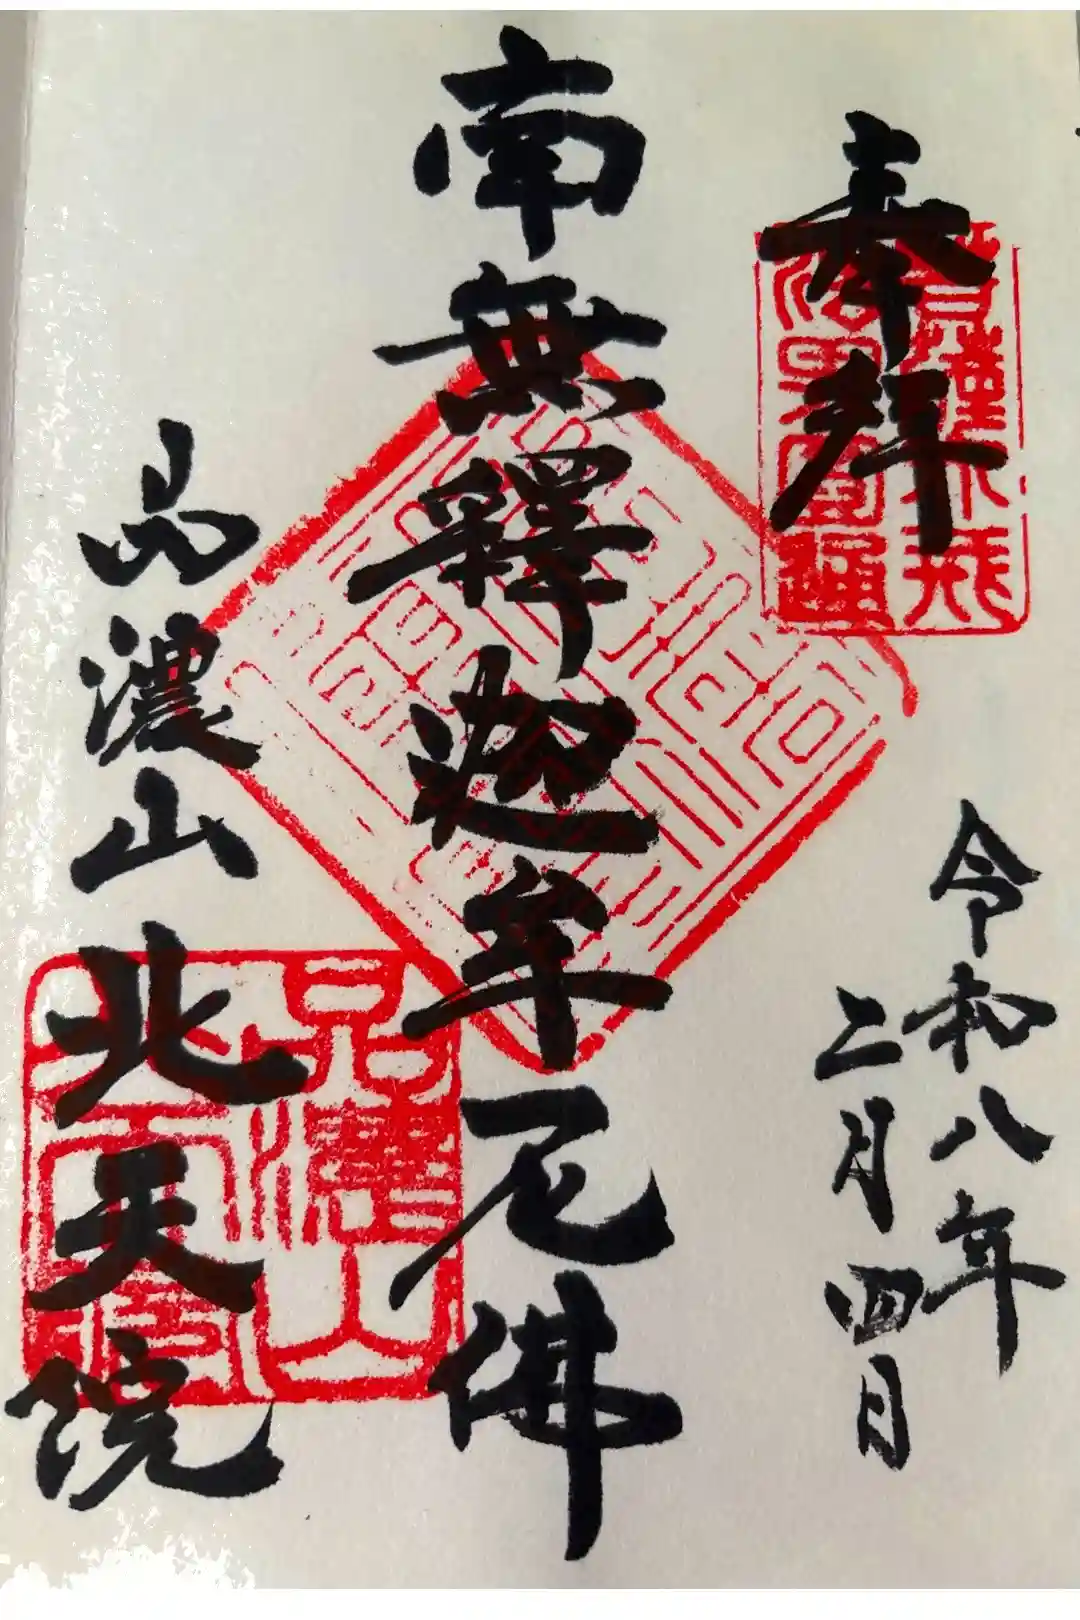 奉拝
令和八年
二月四日
南無釋迦牟尼佛
品濃山北天院
品濃山